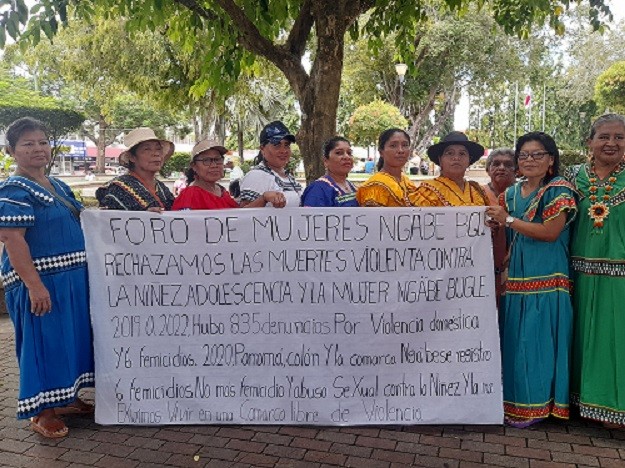 FORO DE MUJERES NGÄBE BUGL
RECHAZAMOS LAS MUERTES VIOLENTA CONTRA
LA NIÑEZ, ADOLESCENCIA Y LA MUJER NGÄBE BUGLE.
2019 a 2022. Hubo 835 denuncias Por Violencia domestica
Y 6 femicidios. 2020, Panamá, colón Y la comarca Ngäbe se registro
6 femicidios. No mas femicidio Y abuso Sexual contra la Niñez Y la
Exigimos Vivir en una Comarca libre de Violencia